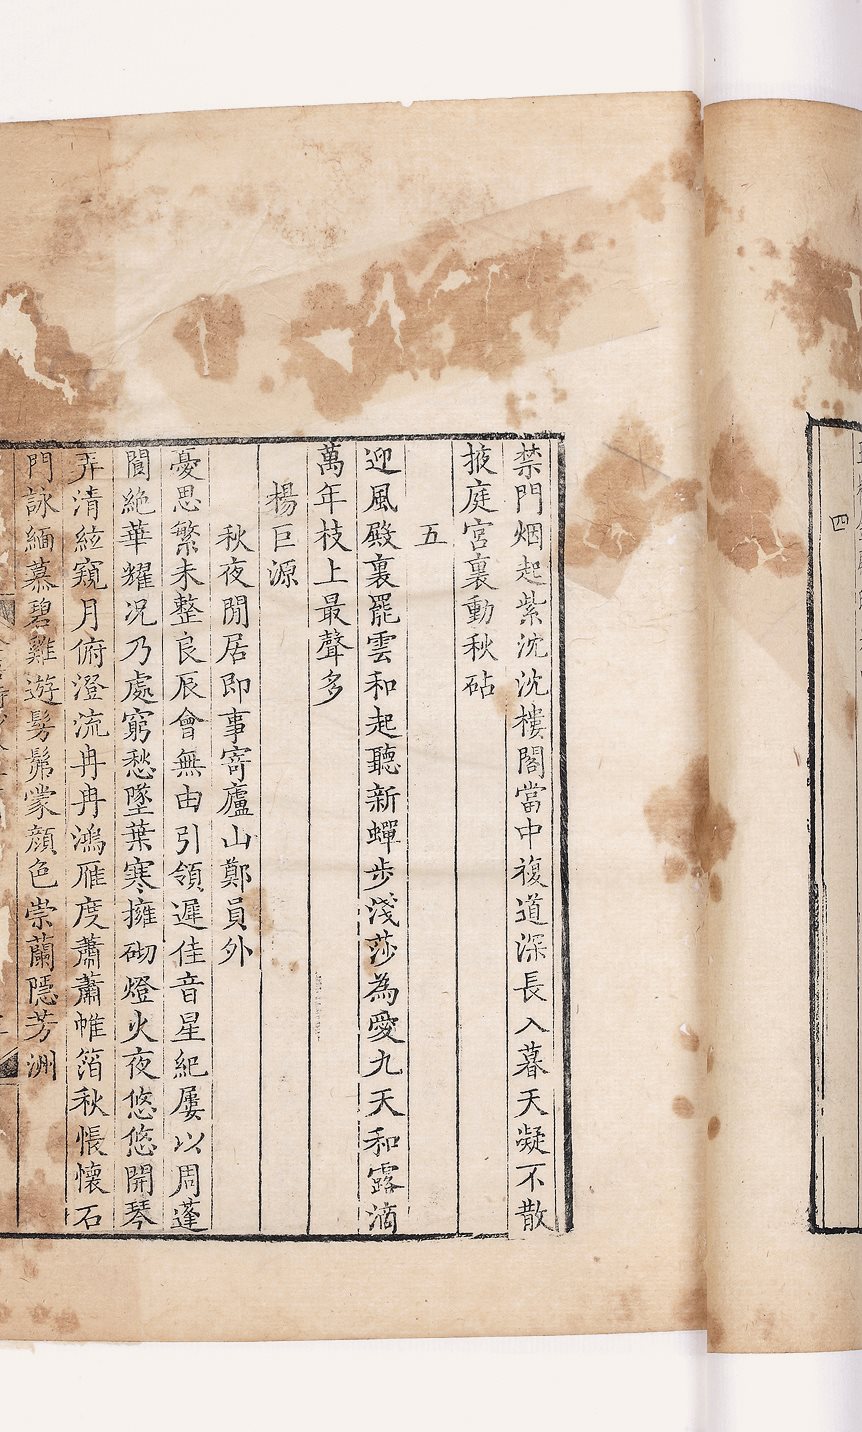 四
禁門烟起紫沈沈樓閣當中複道深長入暮天凝不散
掖庭宮裏動秋砧
五
迎風殿裏罷雲和起聽新蟬步淺莎為愛九天和露滴
萬年枝上最聲多
楊巨源
秋夜閒居即事寄廬山鄭員外
憂思繁未整良辰會無由引領遲佳音星紀屢以周蓬
閬絶華耀况乃處窮愁墜葉寒擁砌燈火夜悠悠開琴
弄清絃窺月俯澄流冉冉鴻雁度蕭蕭帷箔秋悵懷石
門詠緬慕碧雞遊髣髴蒙顔色崇蘭隱芳洲